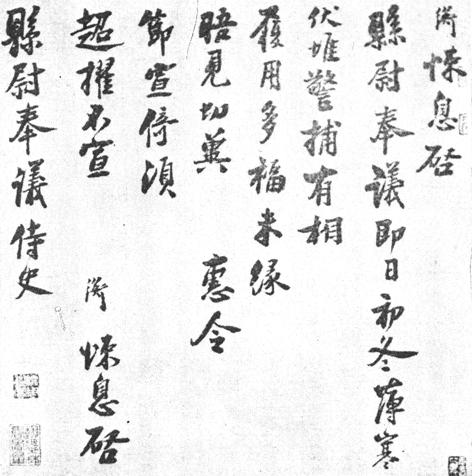 悚息啓
縣尉奉議即日初冬薄寒
伏惟警捕有相
履用多福未緣
晤見切冀 惠令
節宣倚須
超擢不宣 悚息啓
縣尉奉議侍史